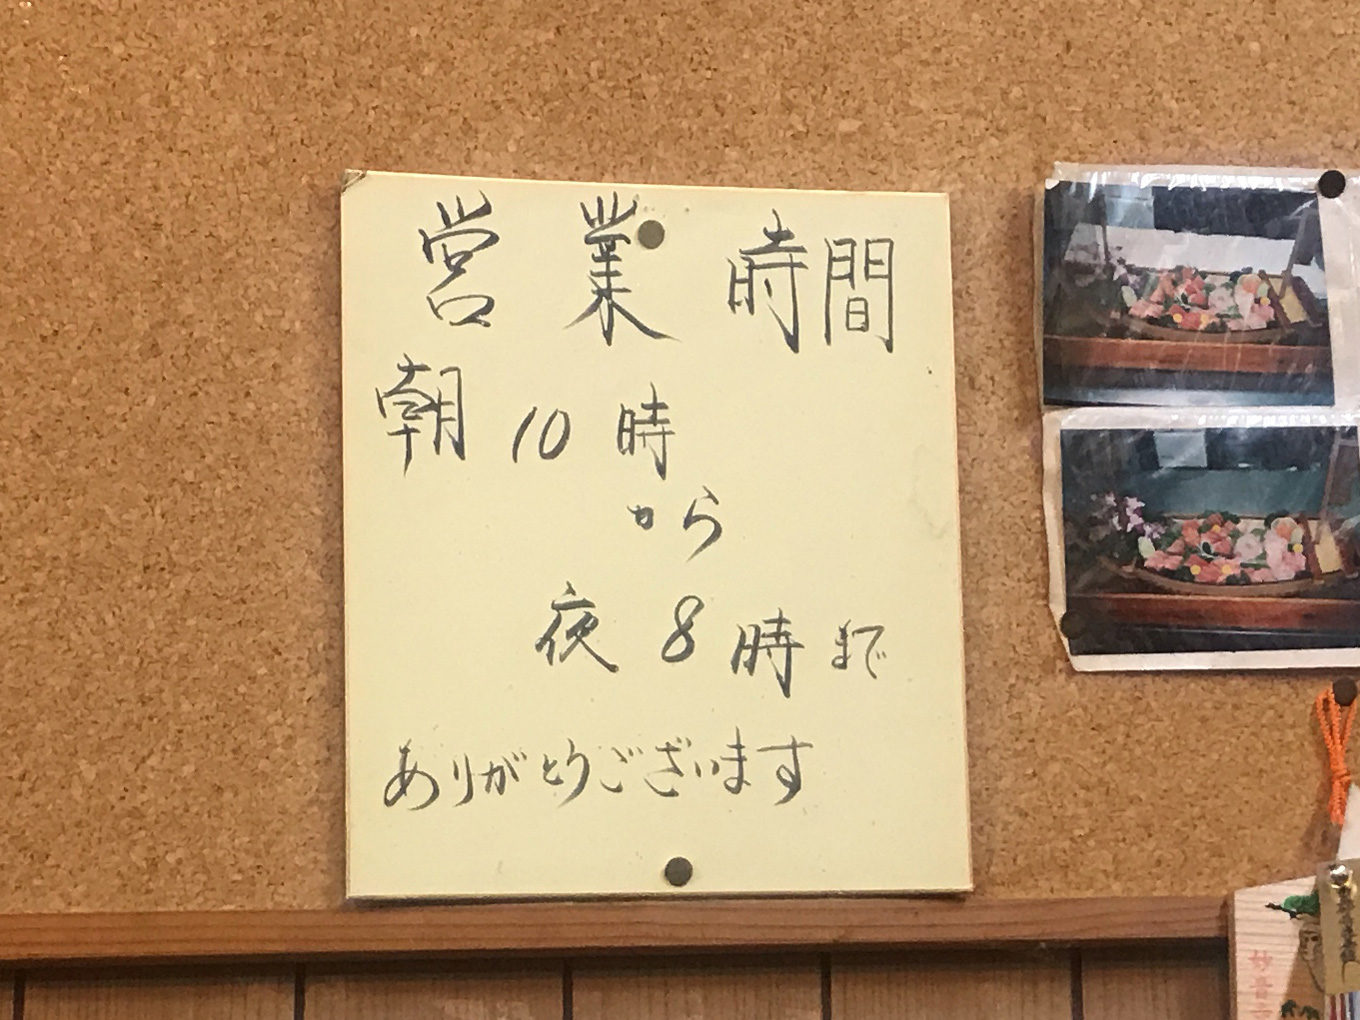 営業時間
朝10時
から
夜8時まで
ありがとうございます